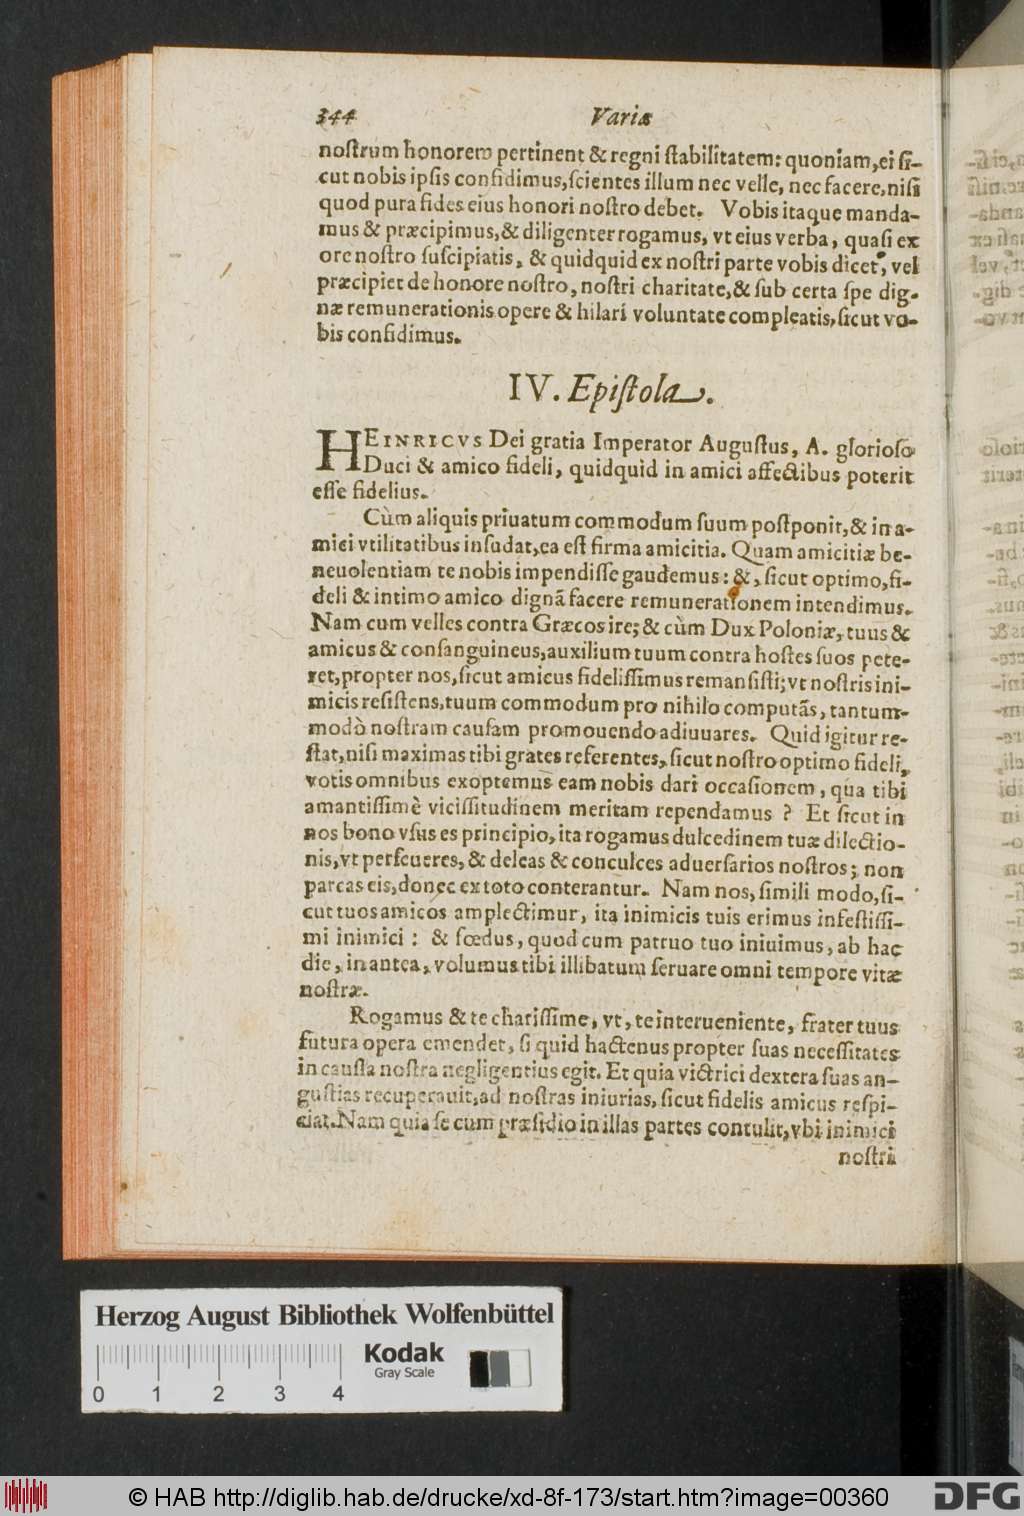 344 Variæ
noſtrum honorem pertinent & regni ſtabilitatem: quoniam, ei ſi-
cut nobis ipſis confidimus, ſcientes illum nec velle, nec facere, niſi
quod pura fides eius honori noſtro debet. Vobis itaque manda-
mus & præcipimus, & diligenter rogamus, vt eius verba, quaſi ex
ore noſtro ſuſcipiatis, & quidquid ex noſtri parte vobis dicet, vel
præcipiet de honore noſtro, noſtri charitate, & ſub certa ſpe dig-
næ remunerationis opere & hilari voluntate compleatis, ſicut vo-
bis confidimus.
IV. Epiſtola.
HEINRICVS Dei gratia Imperator Auguſtus, A. glorioſo
Duci & amico fideli, quidquid in amici affectibus poterit
eſſe fidelius.
Cùm aliquis priuatum commodum ſuum poſtponit, & in a-
mici vtilitatibus inſudat, ea eſt firma amicitia. Quam amicitiæ be-
neuolentiam te nobis impendiſſe gaudemus: &, ſicut optimo, fi-
deli & intimo amico dignã facere remunerationem intendimus.
Nam cum velles contra Græcos ire; & cùm Dux Poloniæ, tuus &
amicus & conſanguineus, auxilium tuum contra hoſtes ſuos pete-
ret, propter nos, ſicut amicus fideliſſimus remanſiſti; vt noſtris ini-
micis reſiſtens, tuum commodum pro nihilo computãs, tantum-
modò noſtram cauſam promouendo adiuuares. Quid igitur re-
ſtat, niſi maximas tibi grates referentes, ſicut noſtro optimo fideli,
votis omnibus exoptemus eam nobis dari occaſionem, qua tibi
amantiſſimè viciſſitudinem meritam rependamus? Et ſicut in
nos bono vſus es principio, ita rogamus dulcedinem tuæ dilectio-
nis, vt perſeueres, & deleas & conculces aduerſarios noſtros; non
parcas eis, donec ex toto conterantur. Nam nos, ſimili modo, ſi-
cut tuos amicos amplectimur, ita inimicis tuis erimus infeſtiſſi-
mi inimici: & fœdus, quod cum patruo tuo iniuimus, ab hac
die, in antea, volumus tibi illibatum ſeruare omni tempore vitæ
noſtræ.
Rogamus & te chariſſime, vt, te interueniente, frater tuus
futura opera emendet, ſi quid hactenus propter ſuas neceſſitates
in cauſſa noſtra negligentius egit. Et quia victrici dextera ſuas an-
guſtias recuperauit, ad noſtras iniurias, ſicut fidelis amicus reſpi-
ciat. Nam quia ſe cum præſidio in illas partes contulit, vbi inimici
noſtri
Herzog August Bibliothek Wolfenbüttel
Kodak
Gray Scale
0 1 2 3 4
© HAB http://diglib.hab.de/drucke/xd-8f-173/start.htm?image=00360
DFG